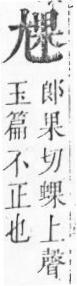 𡯄
郎果切蠃上聲
玉篇不正也